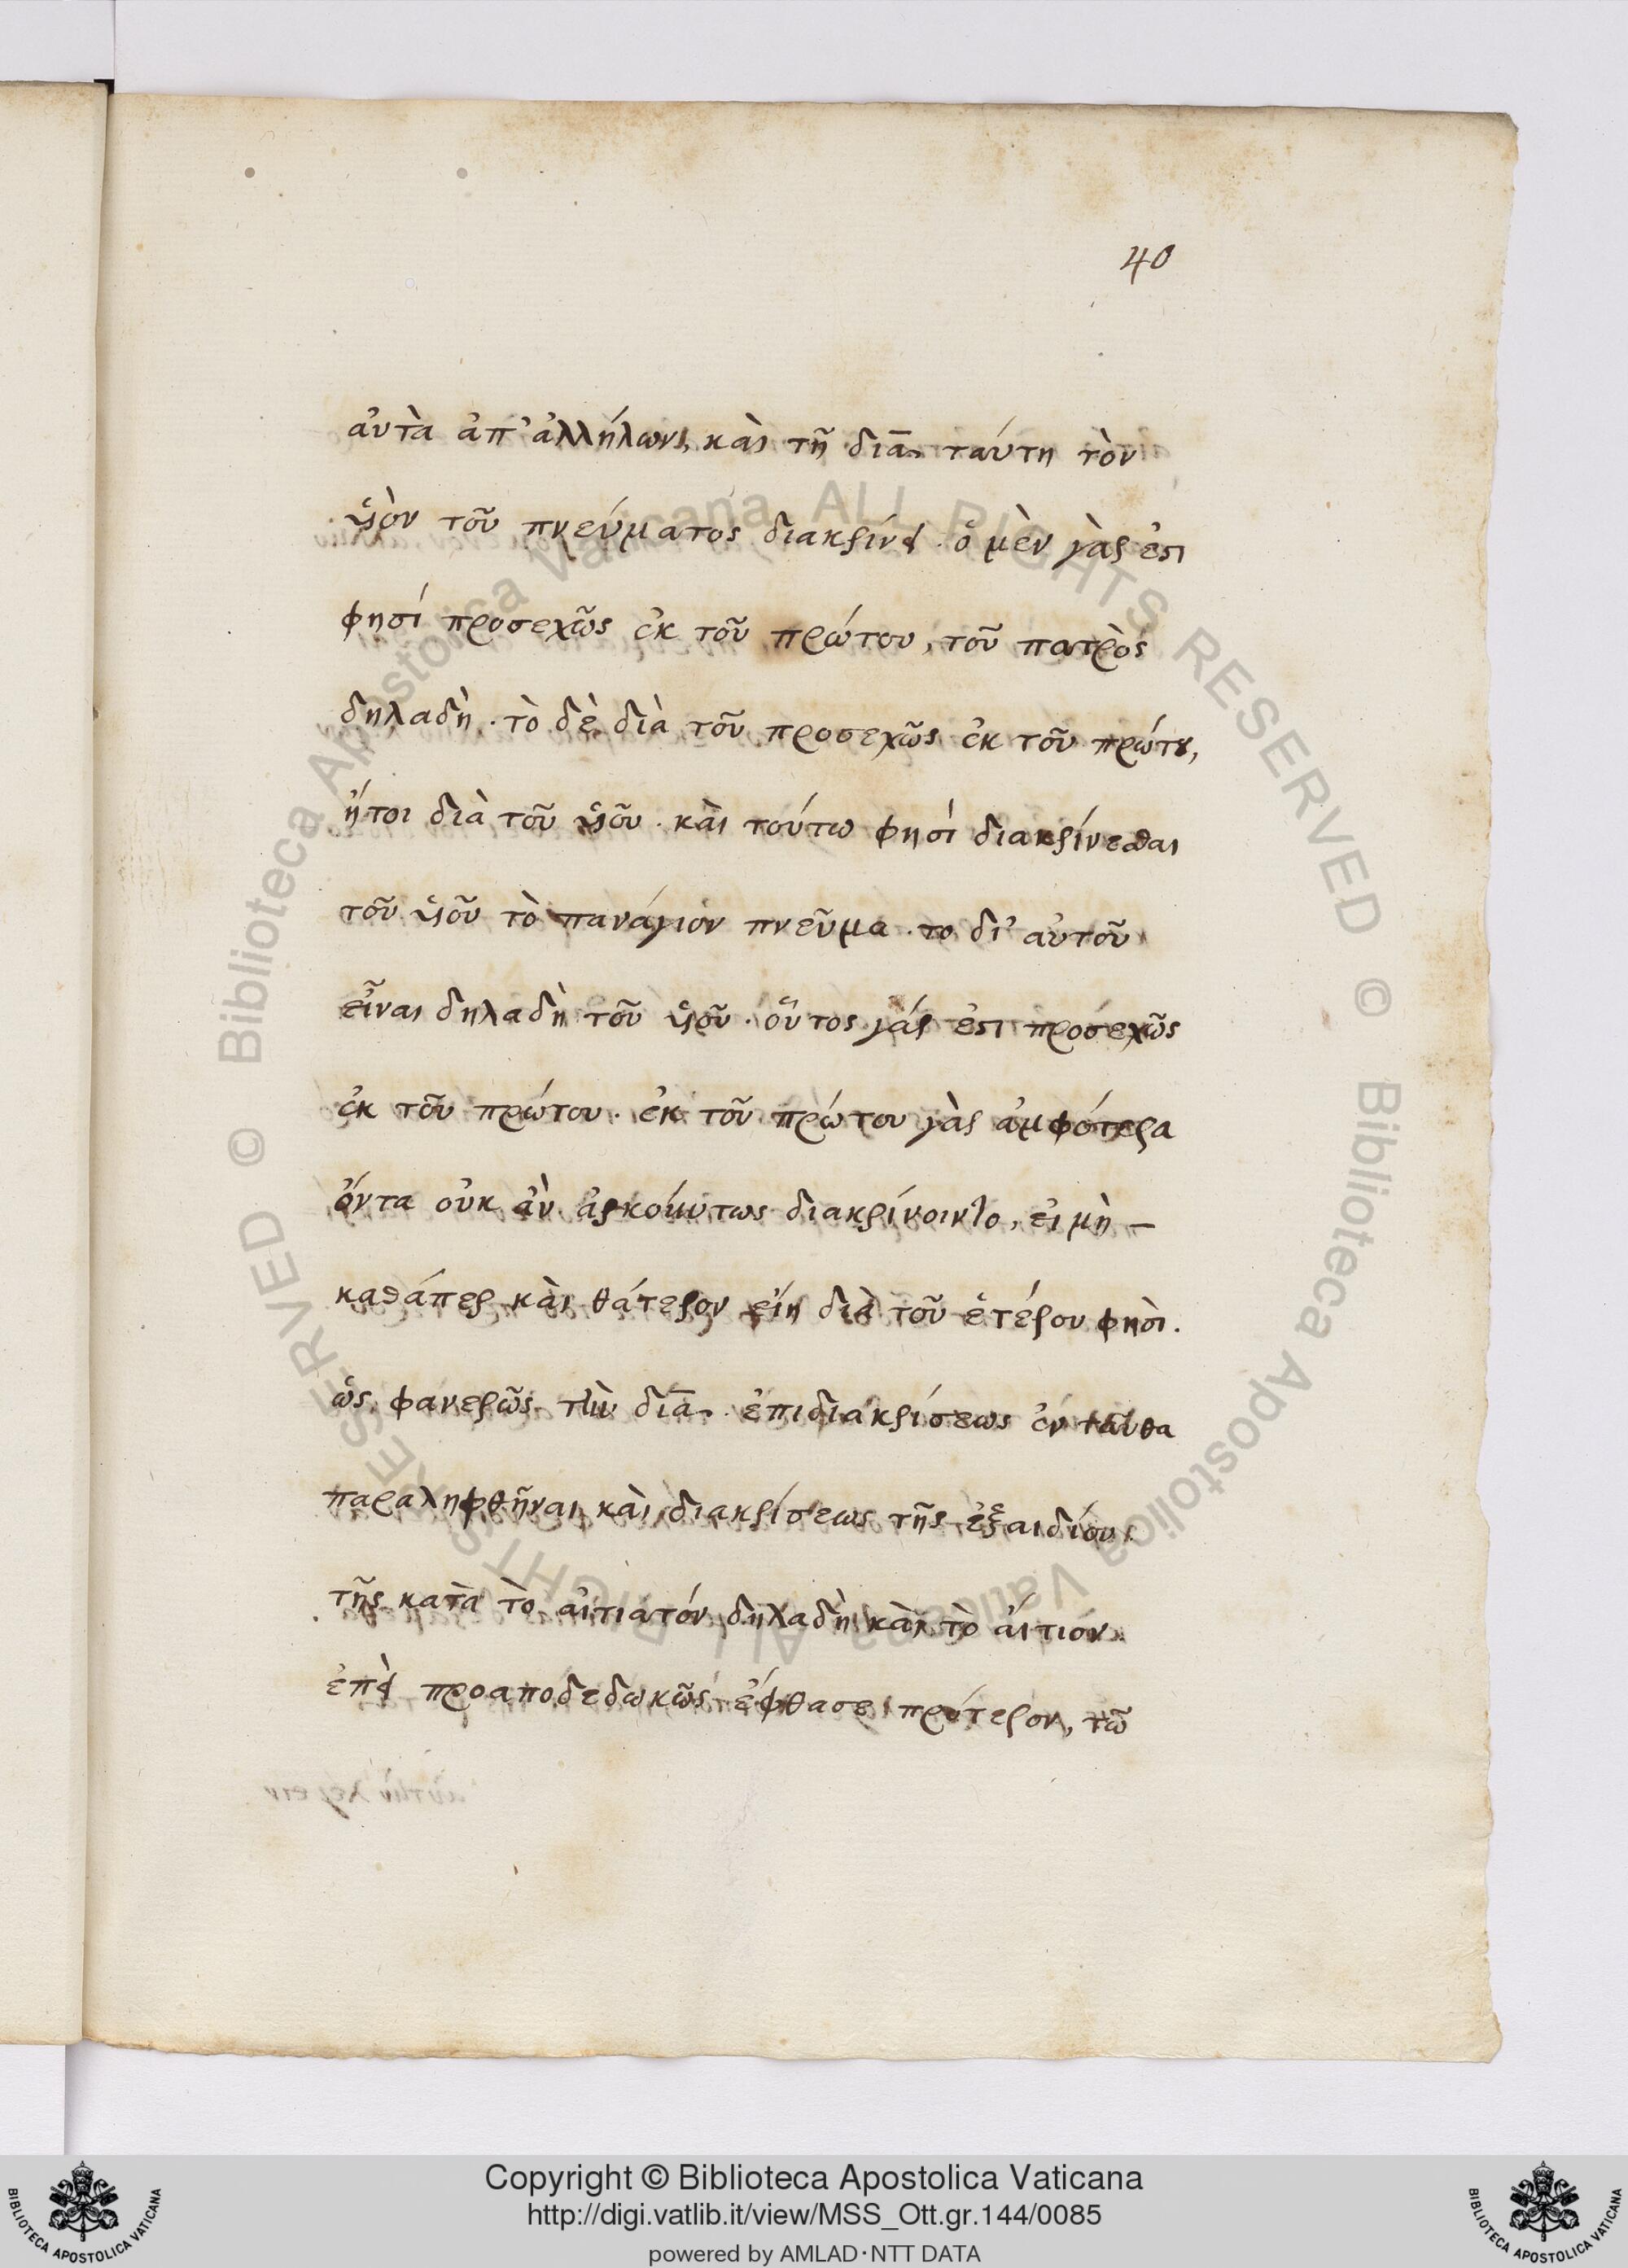 40
αὐτὰ ἀπ' ἀλλήλων, καὶ τῆ διὰ ταύτη τὸν
ὑιὸν τοῦ πνεύματος διακρίνει. ὁ μὲν γάρ ἐστι
φησί προσεχῶς ἐκ τοῦ πρώτου, τοῦ πατρὸς
δηλαδή. τὸ δὲ διὰ τοῦ προσεχῶς ἐκ τοῦ πρώτου,
ἤτοι διὰ τοῦ ὑιοῦ. καὶ τούτω φησὶ διακρίνεσθαι
τοῦ ὑιοῦ τὸ πανάγιον πνεῦμα. το δι' αὐτοῦ
εἶναι δηλαδὴ τοῦ ὑιοῦ. οὗτος γάρ ἐστι προσεχῶς
ἐκ τοῦ πρώτου. ἐκ τοῦ πρώτου γὰρ ἀμφότερα
ὄντα οὐκ ἂν ἀρκούντως διακρίνοιντο, εἰ μὴ –
καθάπερ καὶ θάτερον εἴη διὰ τοῦ ἑτέρου φησὶ.
ὡς φανερῶς τὴν διὰ. ἐπιδιακρίσεως ἐνταῦθα
παραληφθῆναι καὶ διακρίσεως τῆς ἐξαιδίου
τῆς κατὰ τὸ αἰτιατόν δηλαδὴ καὶ τὸ αἴτιον
ἐπεὶ προαποδεδωκὼς ἔφθασε πρότερον, τῶ
© Biblioteca Apostolica Vaticana ALL RIGHTS RESERVED © Biblioteca Apostolica Vaticana ALL RIGHTS RESERVED
Copyright © Biblioteca Apostolica Vaticana
http://digi.vatlib.it/view/MSS_Ott.gr.144/0085
powered by AMLAD·NTT DATA
BIBLIOTECA APOSTOLICA VATICANA
BIBLIOTECA APOSTOLICA VATICANA